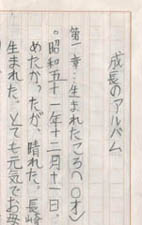 成長のアルバム
第一章…生まれたころ(〇才)
。昭和五十一年十二月十一日。
めたかったが、晴れた。長崎
生まれた。とても元気でお母